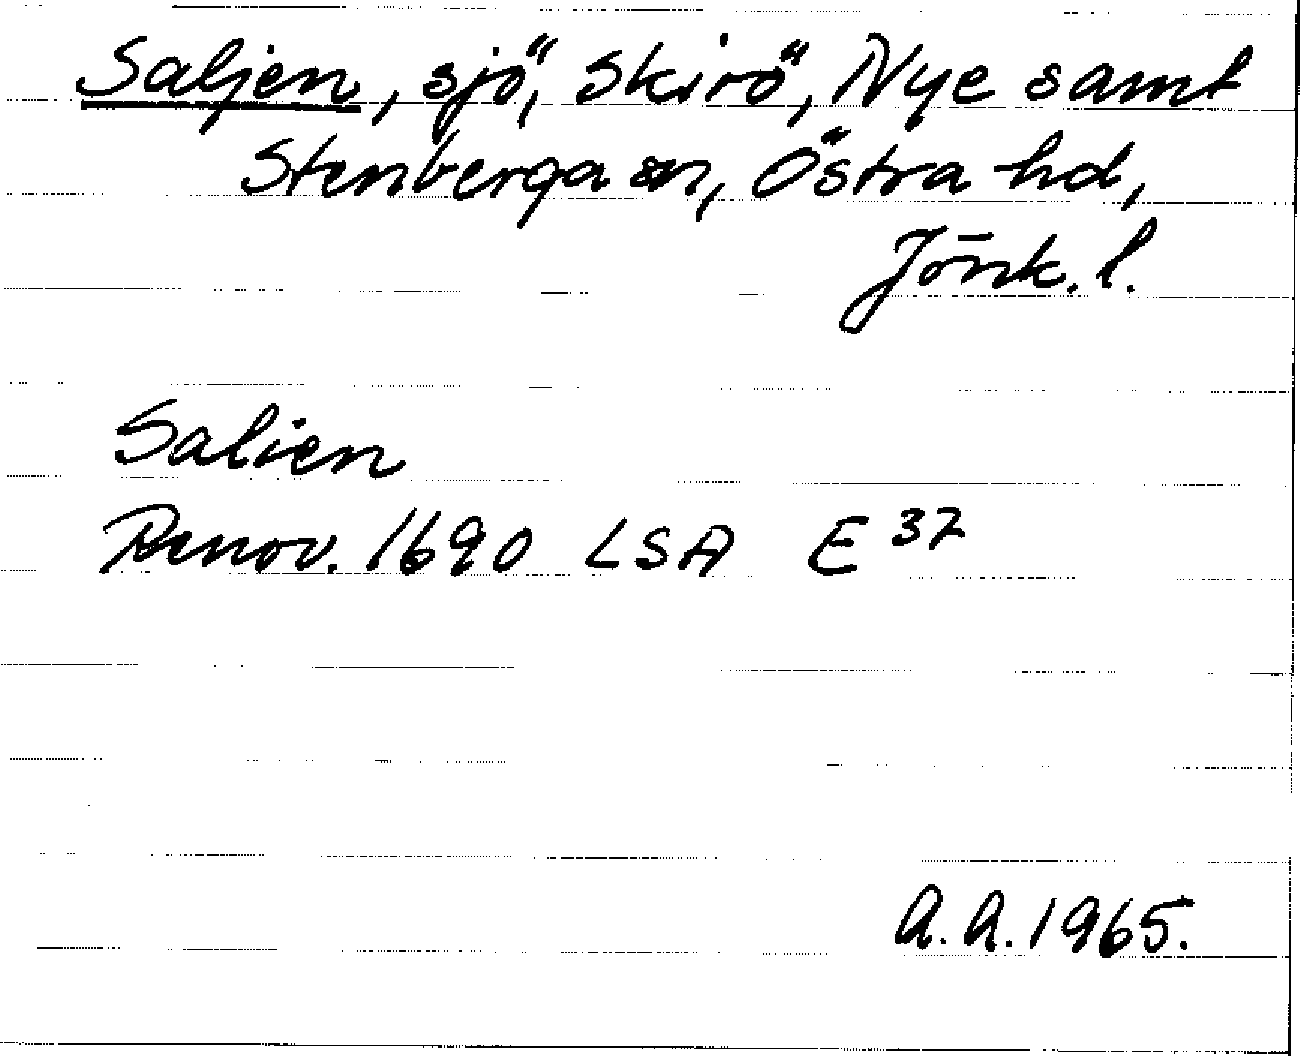 Saljen, sjö, Skirö, Nye samt
Stenberga sn, Östra hd,
Jönk. l.
Salien
Renov. 1690 LSA E 37
A. A. 1965.